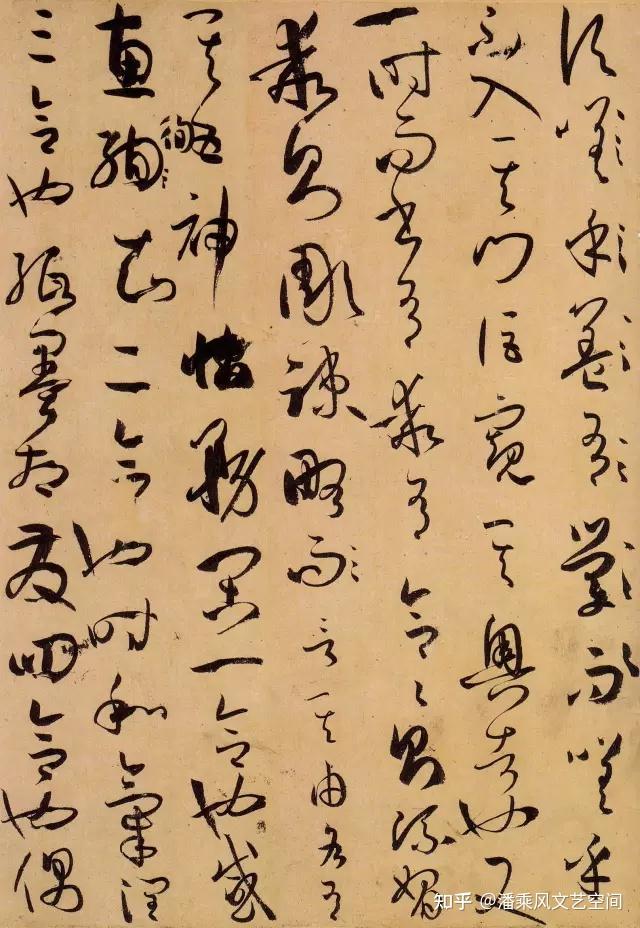 頃嗟乎
不入其門詎窺其奧者也又
一時而書有乖有合合則流媚
乖則彫疎略言其由各有
其五神怡務閑一合也感
惠徇知二合也時和氣潤
三合也紙墨相發四合也偶
知乎 @潘乘风文艺空间